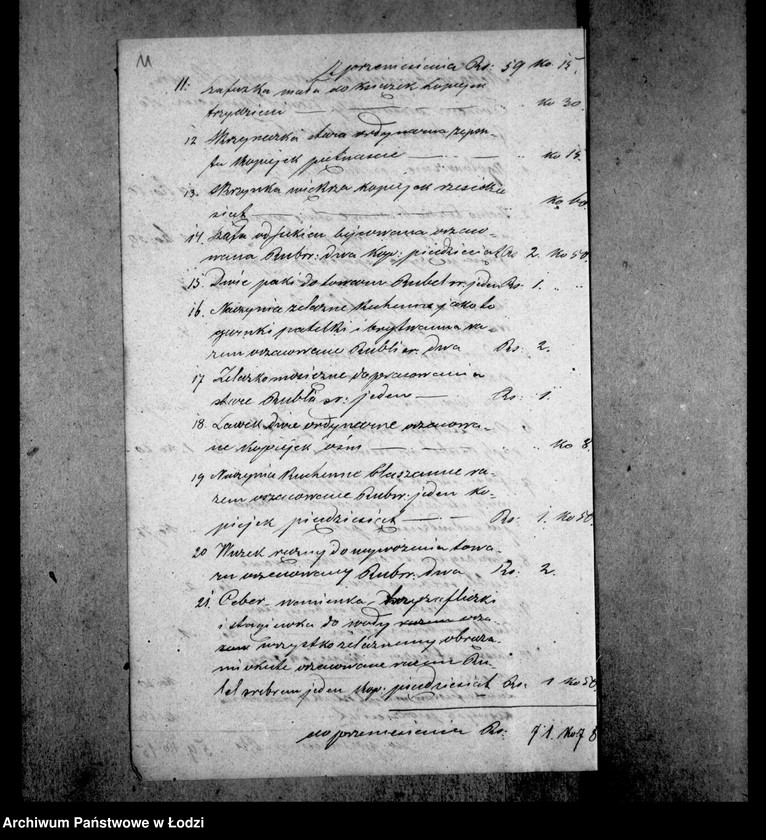 11
z przeniesienia Rs: 59 Ko 15.
11. Szafeczka mała do książek kopiejek
trzydzieści — " Ko 30.
12 Skrzyneczka stara ordynaryjna
kopiejek piętnaście — " Ko 15.
13. Skrzynka większa kopiejek sześćdzie
siąt — Ko 60.
14. Szafa od sukien bejcowana oszaco-
wana Rubsr: dwa kop: piędziesiąt Rs 2. Ko 50.
15. Dwie paki do towaru Rubel sr. jeden Rs. 1. "
16. Naczynia żelazne kuchenne jako to
garnki patelki i brytwanna ra
zem oszacowane Rubli sr. dwa Rs. 2.
17 Żelazko mosiężne do prasowania
stare Rubla sr: jeden — Rs. 1.
18. Ławek dwie ordynaryjne oszacowa-
ne kopiejek ośm — " Ko 8.
19 Naczynia kuchenne blaszanne ra-
zem oszacowane Rubsr. jeden ko-
piejek piędziesiąt — Rs. 1. Ko 50.
20 Wózek ręczny do wywożenia towa-
ru oszacowany Rubsr. dwa Rs. 2.
21. Ceber wanienka, fliszki
i stągiewka do wody razem osza
wszystko żelaznemi obręcza
mi okute oszacowane razem Ru-
bel srebrem jeden kop: piędziesiąt Rs. 1 Ko 50
do przeniesienia Rs. 71. Ko 78
Archiwum Państwowe w Łodzi